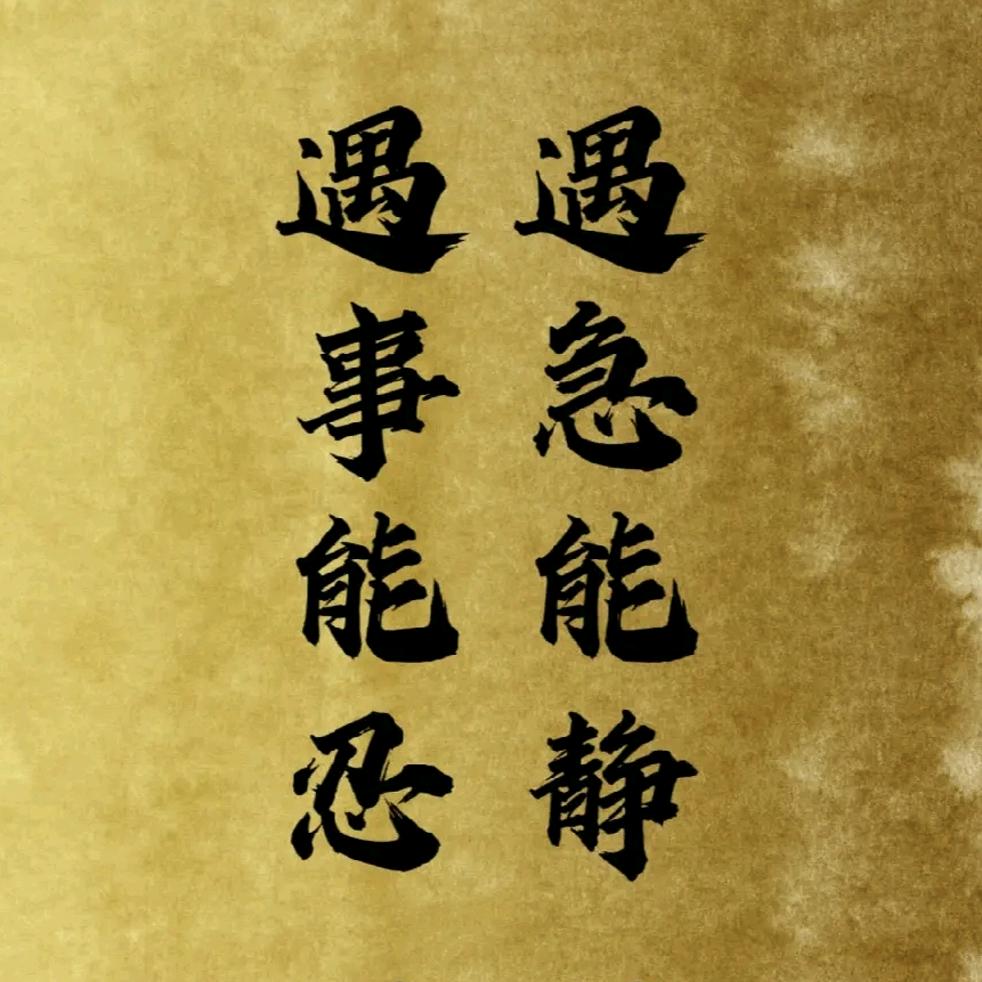 遇急能静
遇事能忍